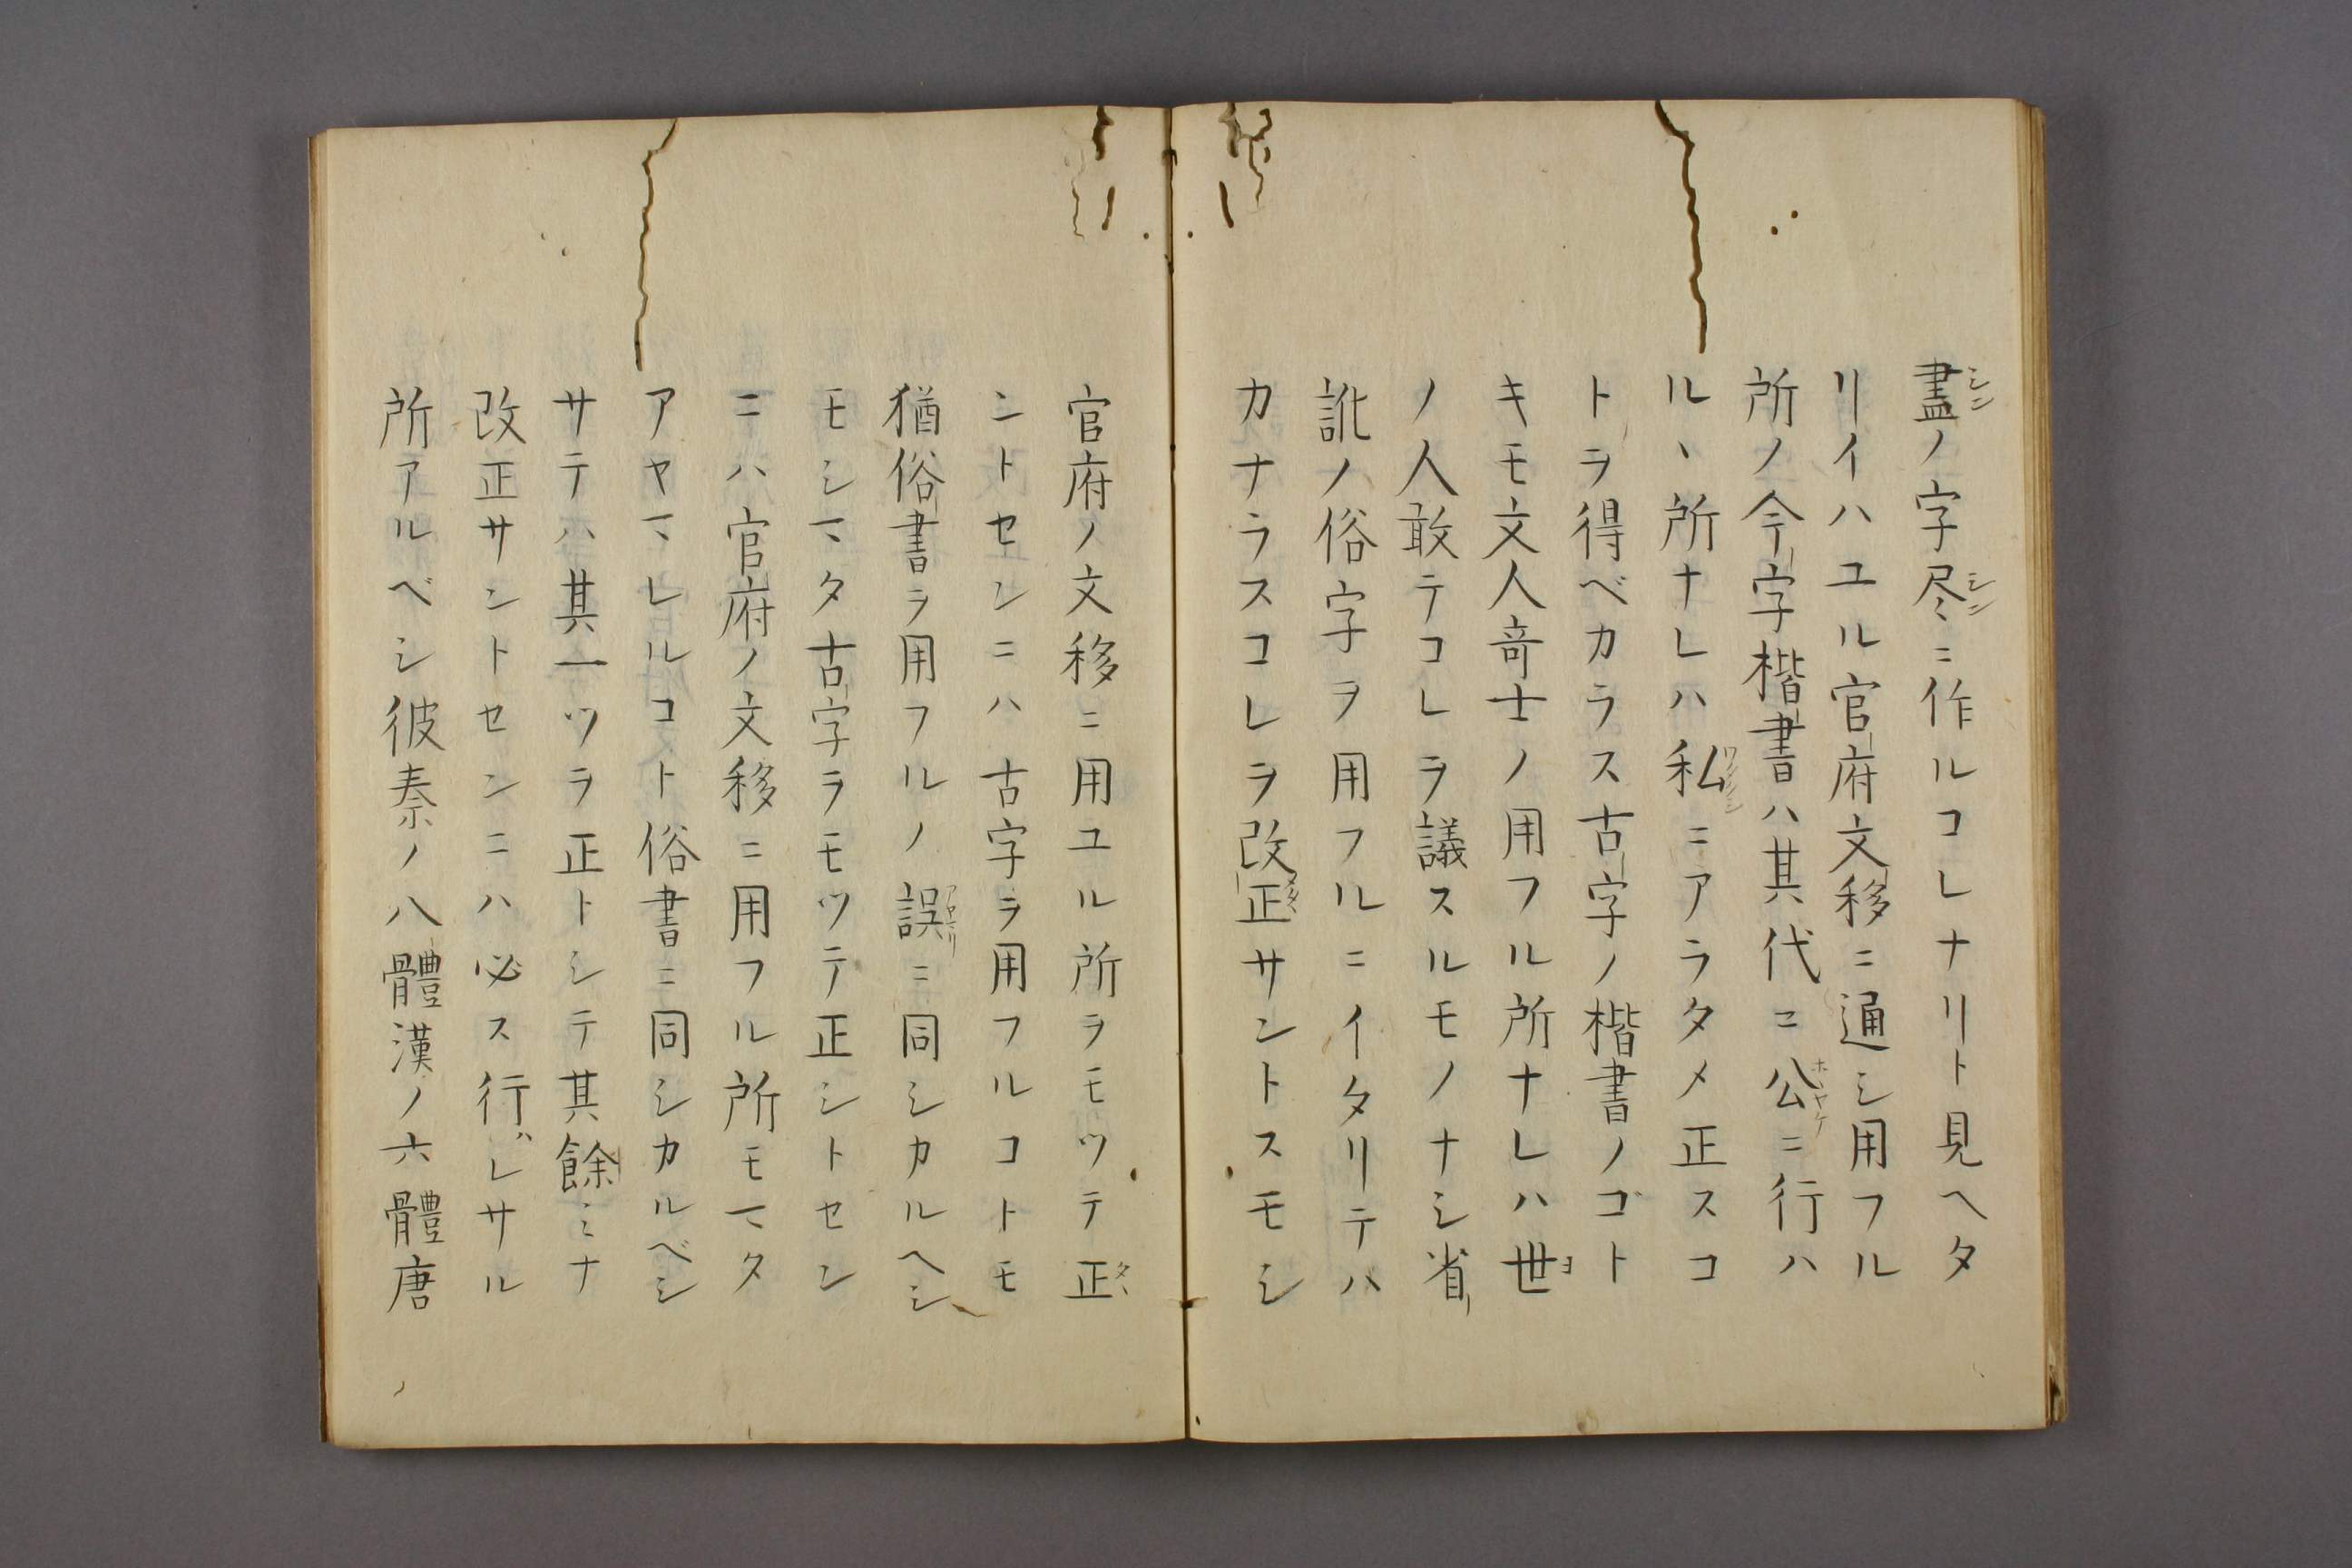 盡ノ字尽ニ作ルコレナリト見ヘタ
リイハユル官府文移ニ通シ用フル
所ノ今字楷書ハ其代ニ公ニ行ハ
ルヽ所ナレハ私ニアラタメ正スコ
トヲ得ベカラス古字ノ楷書ノゴト
キモ文人竒士ノ用フル所ナレハ世
ノ人敢テコレヲ議スルモノナシ省
訛ノ俗字ヲ用フルニイタリテハ
カナラスコレヲ改正サントスモシ
官府ノ文移ニ用ユル所ヲモツテ正
ントセンニハ古字ヲ用フルコトモ
猶俗書ヲ用フルノ誤ニ同シカルヘシ
モシマタ古字ヲモツテ正シトセン
ニハ官府ノ文移ニ用フル所モマタ
アヤマレルコト俗書ニ同シカルベシ
サテハ其一ツヲ正トシテ其餘ミナ
改正サントセンニハ必ス行ハレサル
所アルベシ彼秦ノ八體漢ノ六體唐